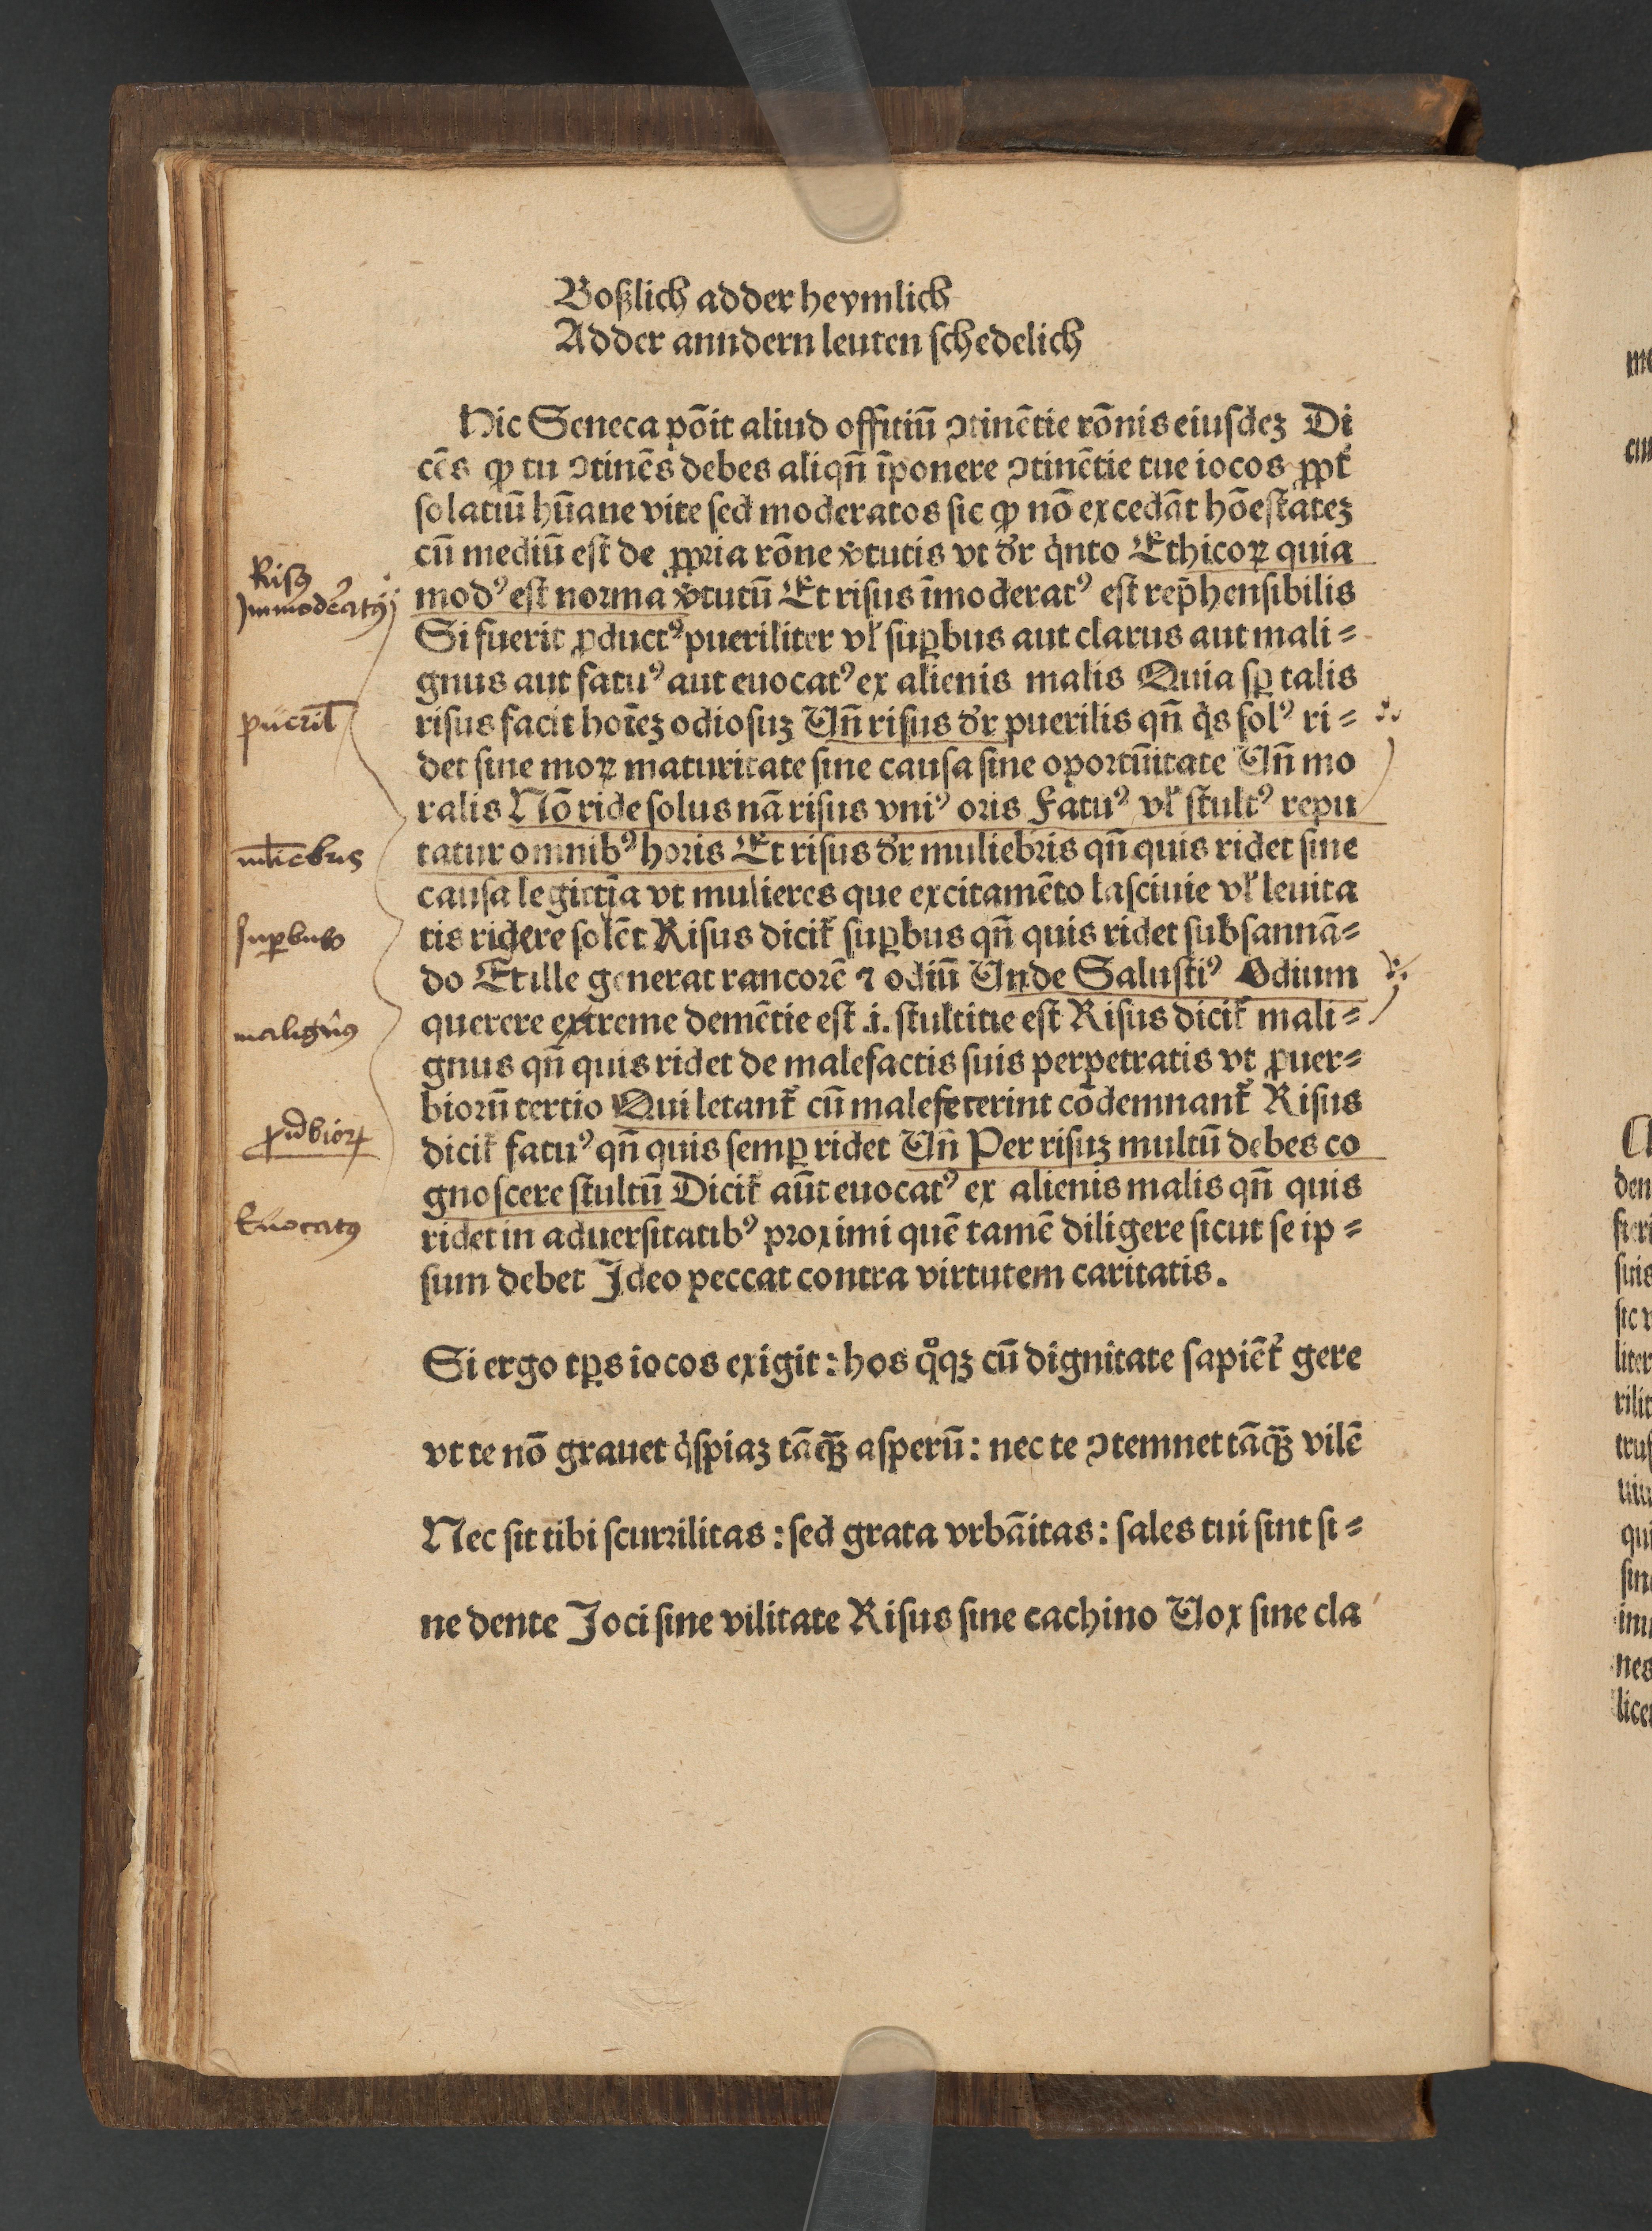 Boßlich adder heymlich
Adder anndern leuten schedelich
Hic Seneca põit aliud offitiũ ↄtinẽtie rõnis eiusdeꝫ Di
cẽs ꝙ tu ↄtinẽs debes aliqñ ĩponere ↄtinẽtie tue iocos ꝓpt̃
solatiũ hũane vite sed moderatos sic ꝙ nõ excedãt hõestateꝫ
cũ mediũ est de ꝓpria rõne v̾tutis vt d̾r q̇nto Ethicoꝝ quia
modꝰ est norma v̾tutũ Et risus ĩmoderatꝰ est rep̃hensibilis
Si fuerit ꝓductꝰ pueriliter vl̾ suꝑbus aut clarus aut mali⸗
gnus aut fatuꝰ aut euocatꝰ ex alienis malis Quia sꝑ talis
risus facit hoĩeꝫ odiosuꝫ Vñ risus d̾r puerilis qñ q̇s solꝰ ri⸗
det sine moꝝ maturitate sine causa sine oportũitate Vñ mo
ralis Nõ ride solus nã risus vniꝰ oris Fatuꝰ vl̾ stultꝰ repu
tatur omnibꝰ horis Et risus d̾r muliebris qñ quis ridet sine
causa legittĩa vt mulieres que excitamẽto lasciuie vl̾ leuita
tis ridere solẽt Risus dicit̃ suꝑbus qñ quis ridet subsannã⸗
do Et ille generat rancorẽ ⁊ odiũ Vnde Salustiꝰ Odium
querere extreme demẽtie est .i. stultitie est Risus dicit̃ mali⸗
gnus qñ quis ridet de malefactis suis perpetratis vt ꝓuer⸗
biorũ tertio Qui letant̃ cũ malefecerint cõdemnant̃ Risus
dicit̃ fatuꝰ qñ quis semꝑ ridet Vñ Per risuꝫ multũ debes co
gnoscere stultũ Dicit̃ aũt euocatꝰ ex alienis malis qñ quis
ridet in aduersitatibꝰ proximi quẽ tamẽ diligere sicut se ip⸗
sum debet Ideo peccat contra virtutem caritatis.
Si ergo tꝑs iocos exigit: hos qͦqꝫ cũ dignitate sapiẽt̃ gere
vt te nõ grauet q̇spiaꝫ tãq̃ꝫ asperũ: nec te ↄtemnet tãq̃ꝫ vilẽ
Nec sit tibi scurrilitas: sed grata vrbãitas: sales tui sint si⸗
ne dente Joci sine vilitate Risus sine cachino Vox sine cla
Risꝰ
Immoderatꝰ
pueril̃
ml̃iebris
suꝑbus
malignꝰ
ꝓu̾bioꝝ
Euocatꝰ